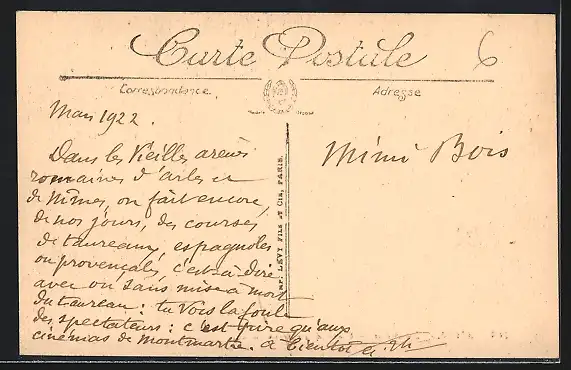 Carte Postale
6
Correspondance
Adresse
Mars 1922.
Mimi Bois
Dans les Vieilles arènes
romaines d'Arles et
de Nîmes, on fait encore,
de nos jours, des courses
de taureaux, espagnoles
ou provençales, c'est à dire
avec ou sans mise à mort
du taureau: tu vois la foule
des spectateurs: c'est pire qu'aux
cinémas de Montmartre. à bientôt
IMP. LÉVY FILS ET CIE, PARIS.